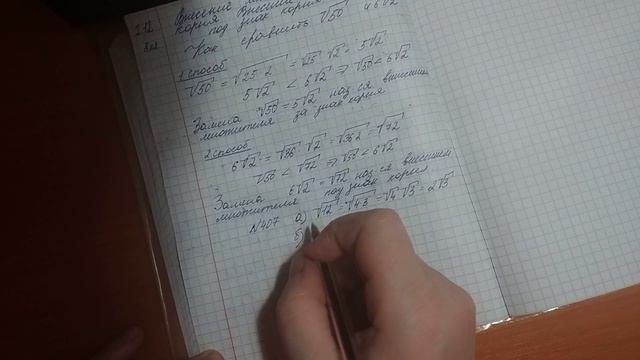 212
Вынесение
корня Внесение
под знак корня
Как сравнить √50 и 6√2
1 способ
√50 = √25·2 = √25·√2 = 5√2
5√2 < 6√2 ⇒ √50 < 6√2
Замена √50 = 5√2 наз-ся вынесением
множителя за знак корня
2 способ
6√2 = √36·√2 = √36·2 = √72
√50 < √72 ⇒ √50 < 6√2
Замена 6√2 = √72 наз-ся внесением
множителя под знак корня
№407 а) √12 = √4·3 = √4·√3 = 2√3
б)